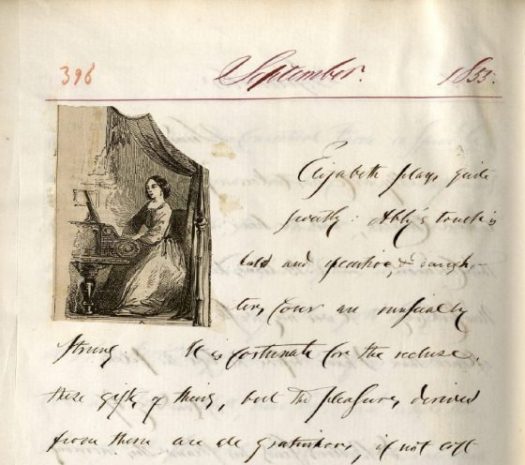 398 September. 1855.
Elizabeth plays quite
sweetly: Abby's touch is
bold and positive, & daugh-
ters four are musically
strung It is fortunate for the recluse,
these gifts of theirs, but the pleasures derived
from them are if not